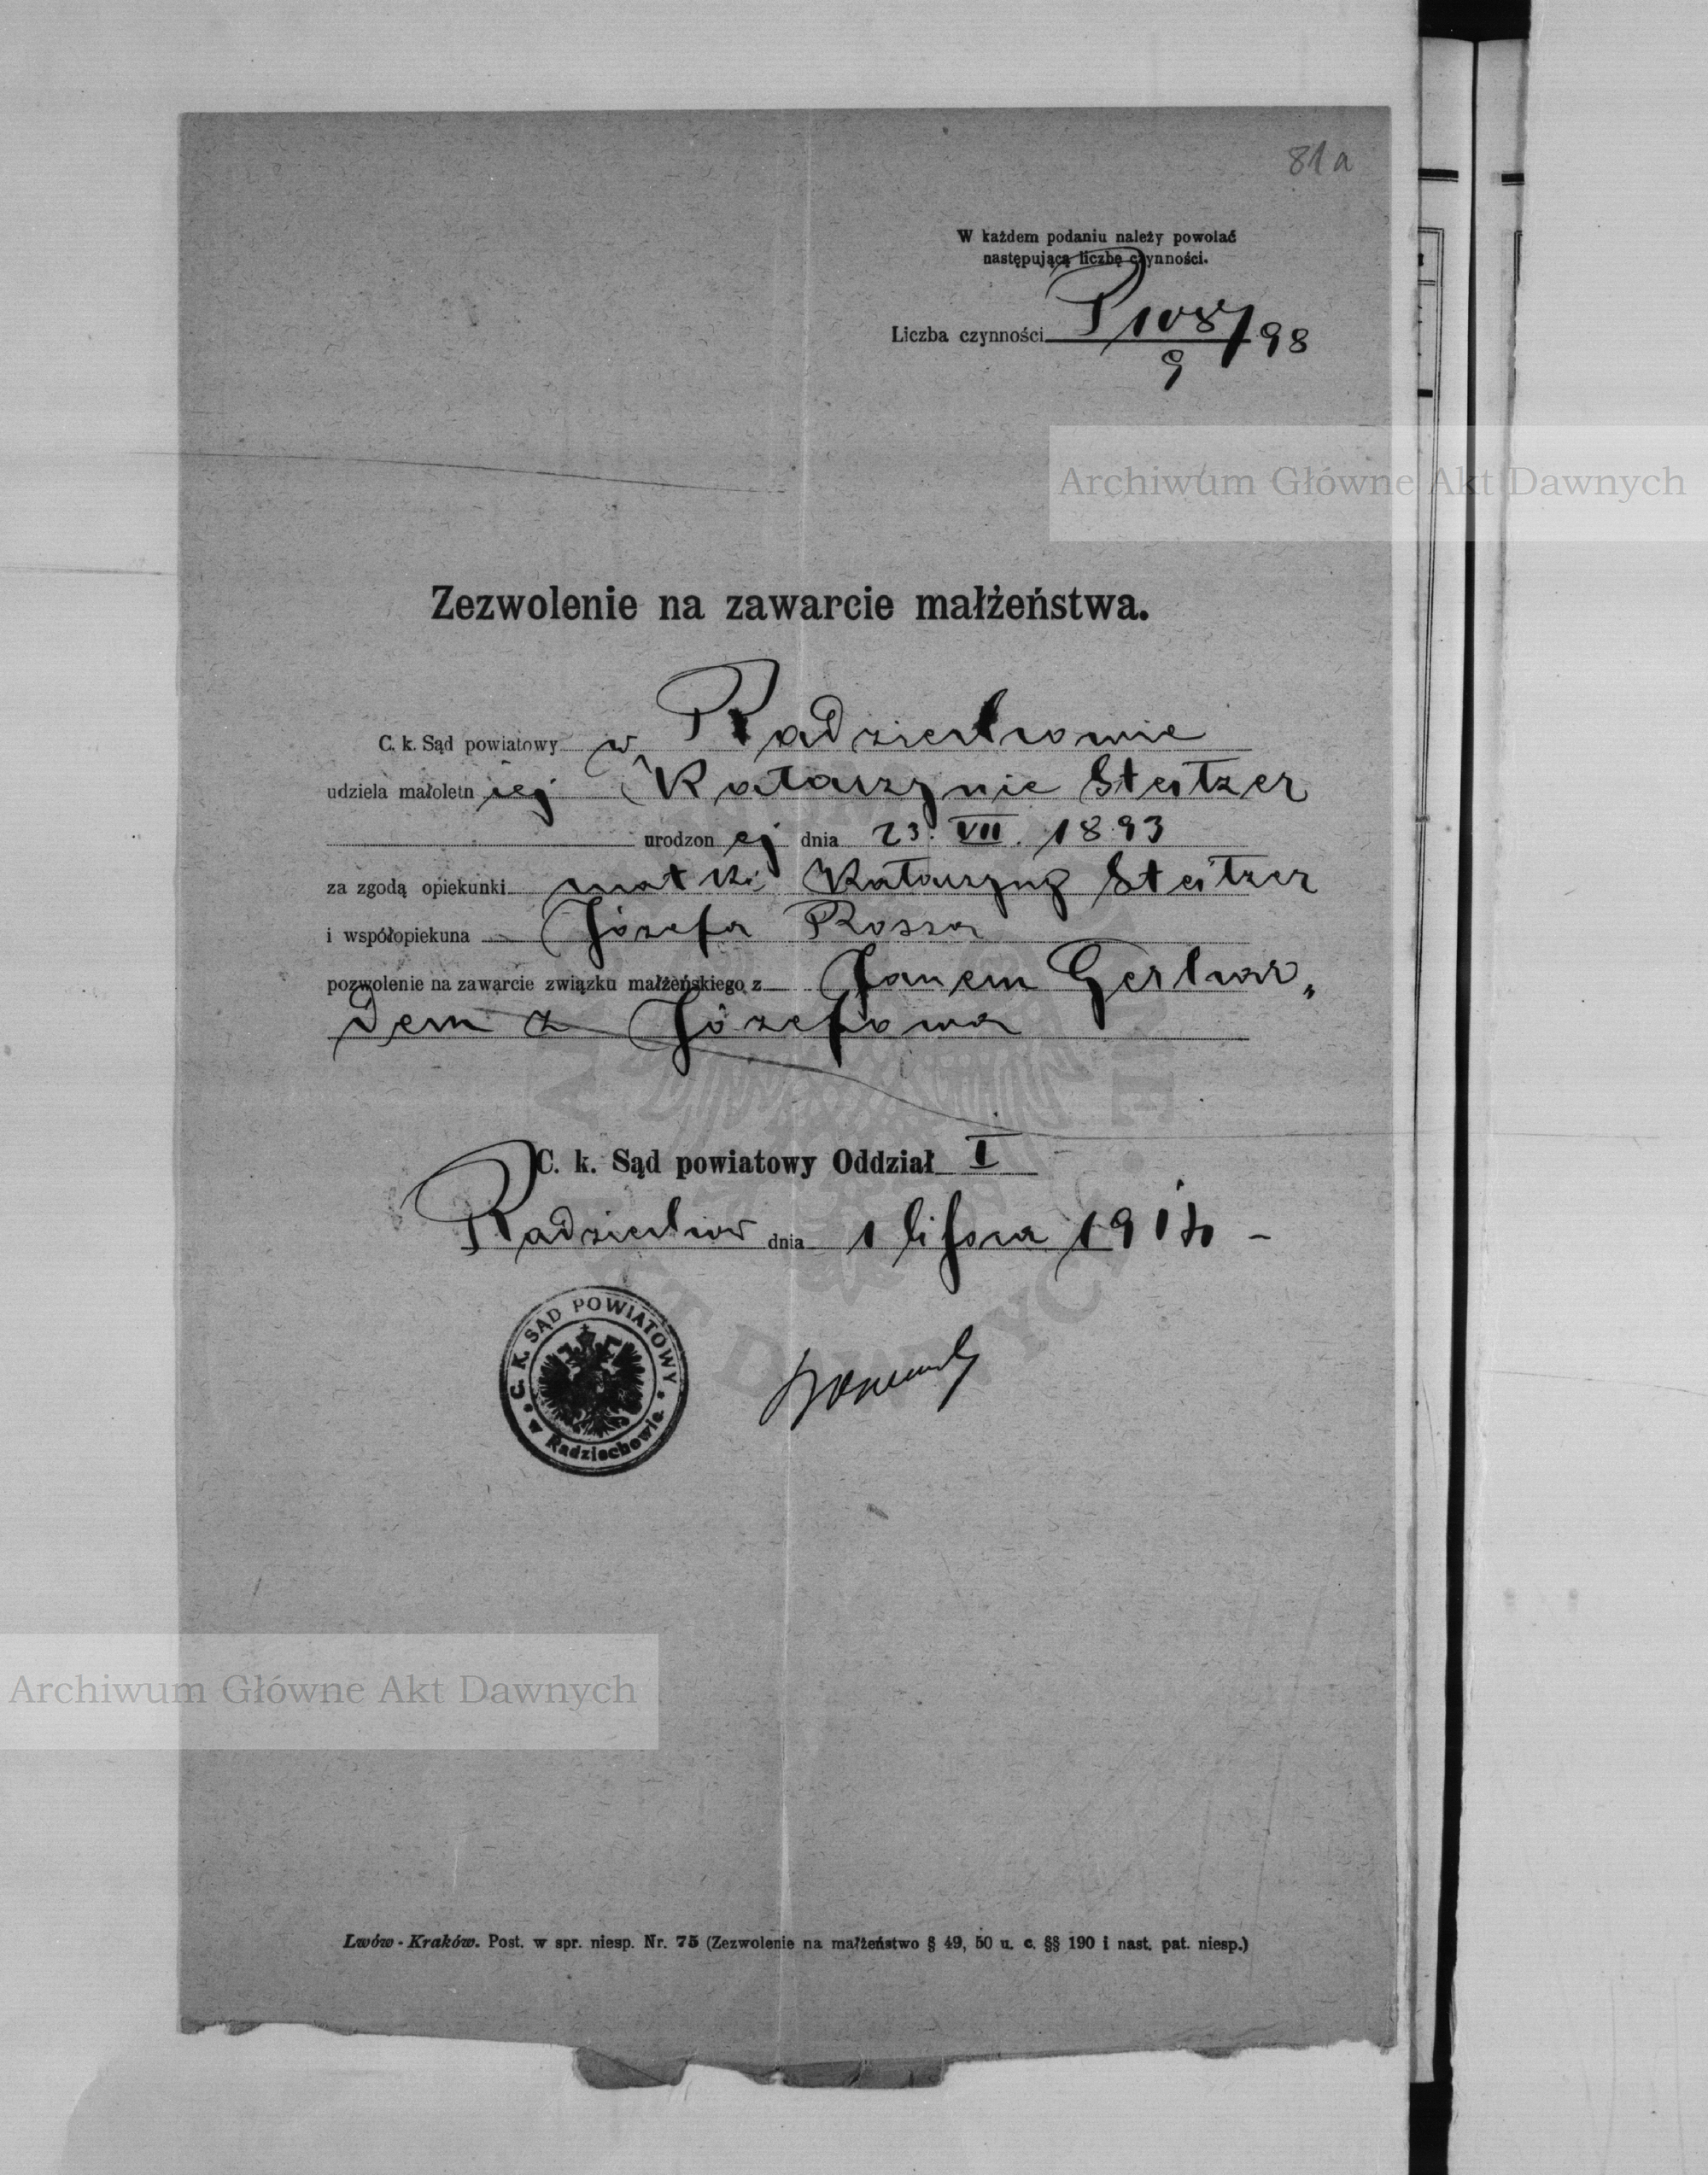 81a
W każdem podaniu należy powołać
następującą liczbę czynności.
Liczba czynności P 108/98
9
Archiwum Główne Akt Dawnych
Zezwolenie na zawarcie małżeństwa.
C. k. Sąd powiatowy w Radziechowie
udziela małoletniej Katarzynie Steitzer
urodzonej dnia 23. VII. 1893
za zgodą opiekunki matki Katarzyny Steitzer
i współopiekuna Józefa Rossa
pozwolenie na zawarcie związku małżeńskiego z Janem Gerhar„
dem z Józefowa
C. k. Sąd powiatowy Oddział I
Radziechów dnia 1 lipca 1914
C. K. SĄD POWIATOWY
w Radziechowie
Archiwum Główne Akt Dawnych
Lwów - Kraków. Post. w spr. niesp. Nr. 75 (Zezwolenie na małżeństwo § 49, 50 u. c. §§ 190 i nast. pat. niesp.)